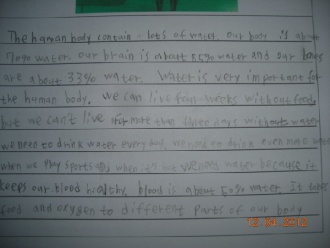 The human body contain lots of water. Our body is about
70% water. our brain is about water and our bones
are about 33% water. Water is very important for
the human body. we can live four weeks without food,
but we can't live for more then three days without water
we need to drink water everyday. we need to drink even more water
when we play sports when it's hot we need water because it
keeps our blood healthy. blood is about 50% water. It
food and oxygen to different parts of our body
2012